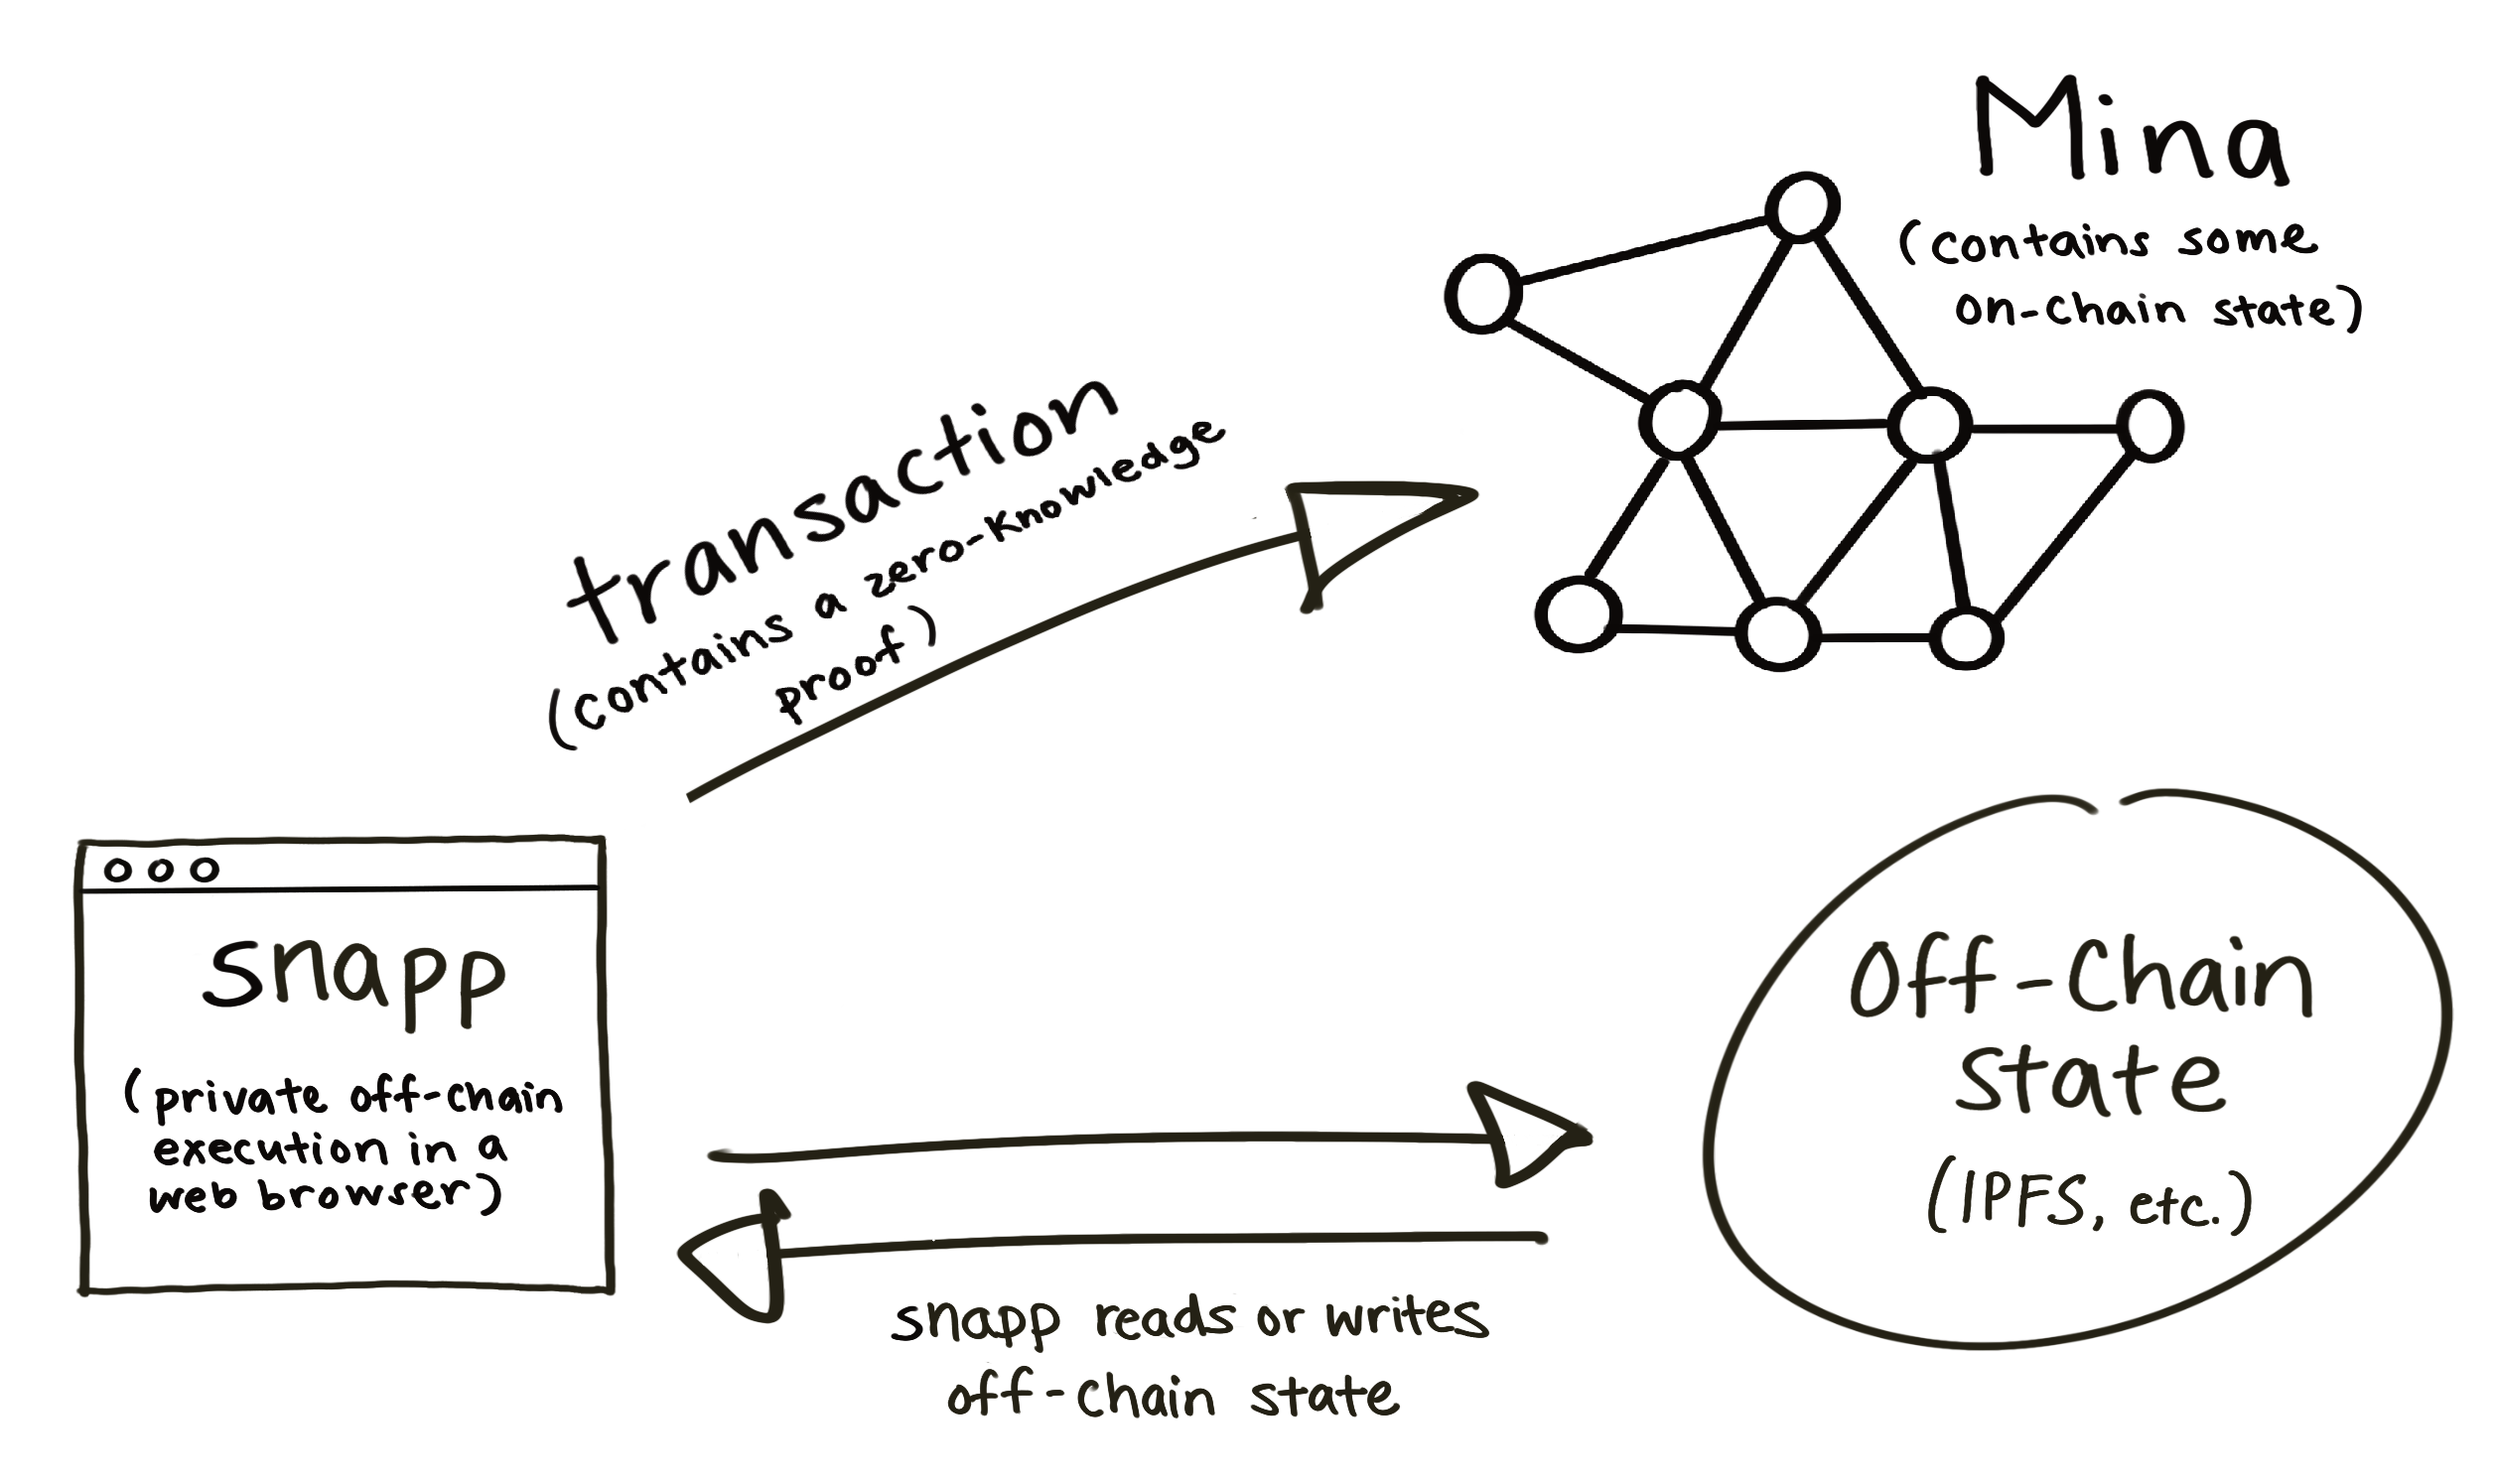 Mina
(contains some
on-chain state)
transaction
(contains a zero-knowledge
proof)
snapp
(private off-chain
execution in a
web browser)
Off-Chain
State
(IPFS, etc.)
snapp reads or writes
off-chain state